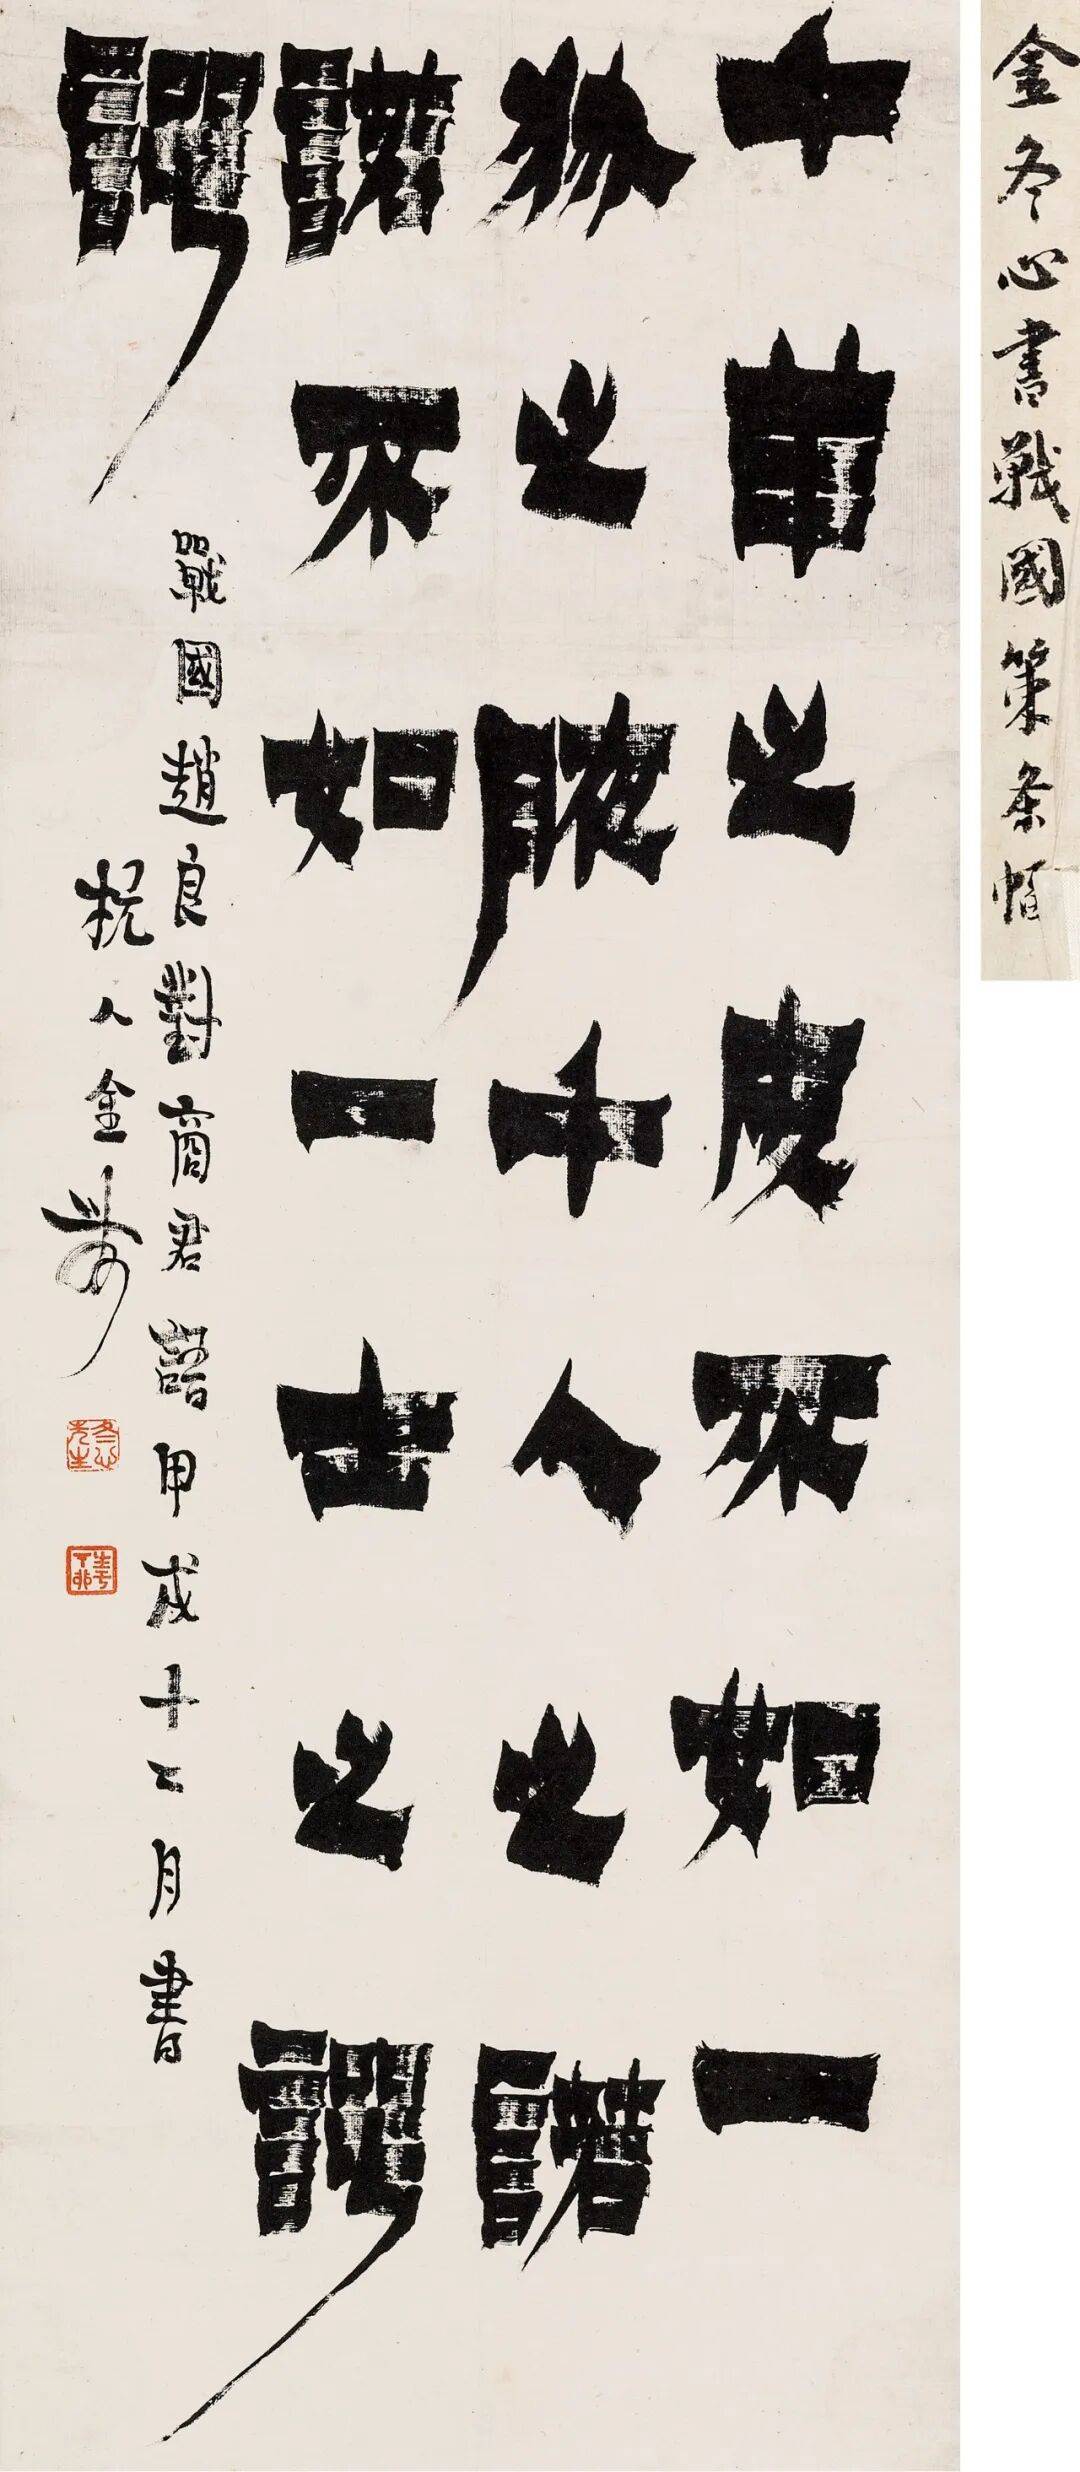 金冬心書戰國策条幅
千羊之皮不如一
狐之腋千人之諾
諾不如一士之諤
諤
戰國趙良對商君語甲戌十二月書
杭人金農
冬心先生